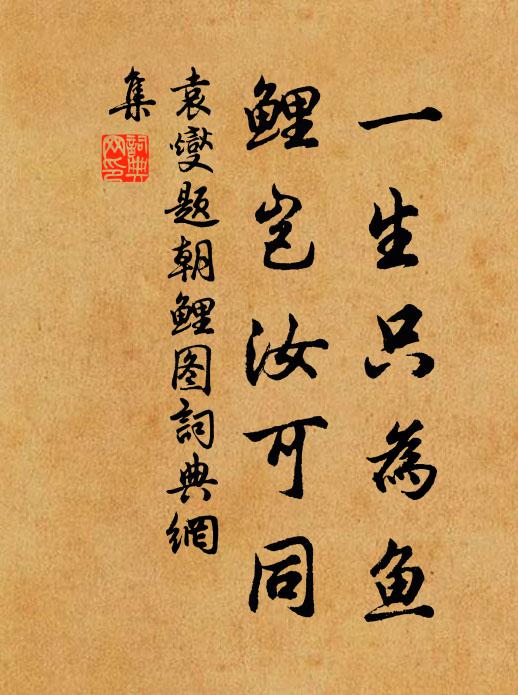 一生只為鱼
鲤岂汝可同
袁燮题朝鲤图詞典網
集
詞典
网印